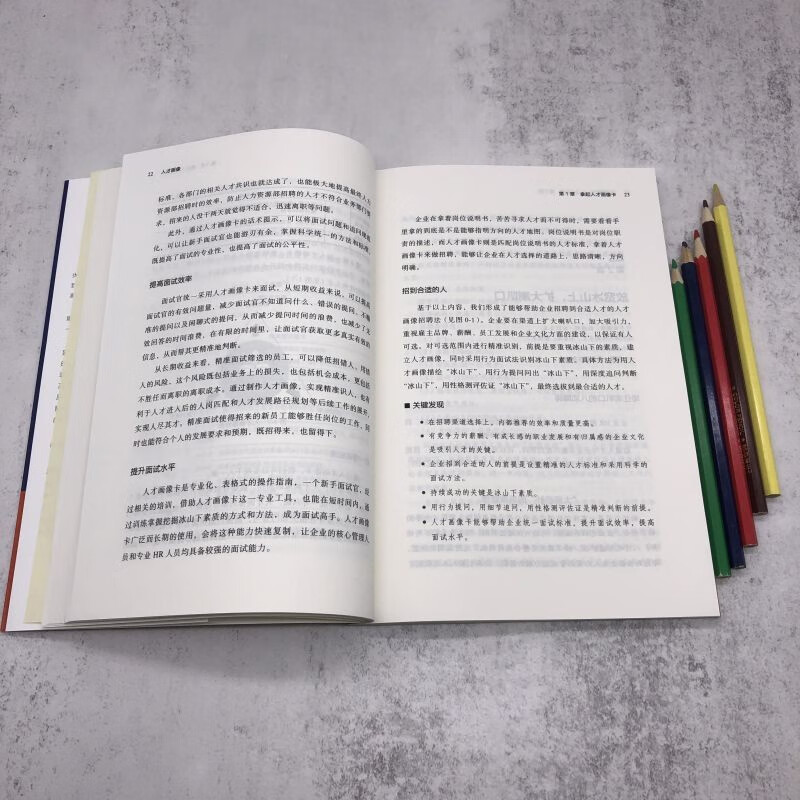 22 人才画像
标准，各部门的相关人才共识也就达成了，也能极大地提高最终人力
资源部招聘时的效率，防止人力资源部招聘的人才不符合业务部门要
求，招来的人没干两天就觉得不适合、迅速离职等问题。
此外，通过人才画像卡的话术提示，可以将面试问题和追问规范
化，可以让新手面试官也能游刃有余，掌握科学统一的方法和标准，
既提高了面试的专业性，也提高了面试的公平性。
提高面试效率
面试官统一采用人才画像卡来面试，从短期收益来说，可以提高
面试官的有效问题量，减少面试官不知道问什么、错误的提问、不精
准的提问以及闲聊式的提问，从而减少提问时间的浪费，也减少了无
效问答的时间浪费，在有限的时间里，让面试官获取更多真实有效的
信息，从而帮其更精准地判断。
从长期收益来看，精准面试筛选的员工，可以降低招错人、用错
人的风险，这个风险既包括业务上的损失，也包括机会成本，更包括
不胜任而离职的离职成本。通过制作人才画像，实现精准识人，也有
利于人才进入后的人岗匹配和人才发展路径规划等后续工作的展开，
实现人尽其才。精准面试使得招来的新员工能够胜任岗位的工作，同
时也能符合个人的发展要求和预期，既招得来，也留得下。
提升面试水平
人才画像卡是专业化、表格式的操作指南，一个新手面试官，经
过相关的培训，借助人才画像卡这一专业工具，也能在短时间内，通
过训练掌握挖掘冰山下素质的方式和方法，成为面试高手。人才画像
卡广泛而长期的使用，会将这种能力快速复制，让企业的核心管理人
员和专业 HR 人员均具备较强的面试能力。
第 1 章 拿起人才画像卡 23
企业在拿着岗位说明书，苦苦寻求人才而不可得时，需要看看手
里拿的到底是不是能够指明方向的人才地图。岗位说明书是对岗位职
责的描述，而人才画像卡则是匹配岗位说明书的人才标准，拿着人才
画像卡来做招聘，能够让企业在人才选择的道路上，思路清晰、方向
明确。
招到合适的人
基于以上内容，我们形成了能够帮助企业招聘到合适人才的人才
画像招聘法（见图 0-1）。企业要在渠道上扩大喇叭口，加大吸引力，
重视雇主品牌、薪酬、员工发展和企业文化方面的建设，以保证有人
可选。对可选范围内进行精准识别，前提是要重视冰山下的素质，建
立人才画像，同时采用行为面试法识别冰山下素质。具体方法为用人
才画像描绘“冰山下”，用行为提问问出“冰山下”，用深度追问判断
“冰山下”，用性格测评佐证“冰山下”，最终选拔到最合适的人才。
■ 关键发现
● 在招聘渠道选择上，内部推荐的效率和质量更高。
● 有竞争力的薪酬、有成长感的职业发展和有归属感的企业文化
是吸引人才的关键。
● 企业招到合适的人的前提是设置精准的人才标准和采用科学的
面试方法。
● 持续成功的关键是冰山下素质。
● 用行为提问，用细节追问，用性格测评佐证是精准判断的前提。
● 人才画像卡能够帮助企业统一面试标准，提升面试效率，提高
面试水平。